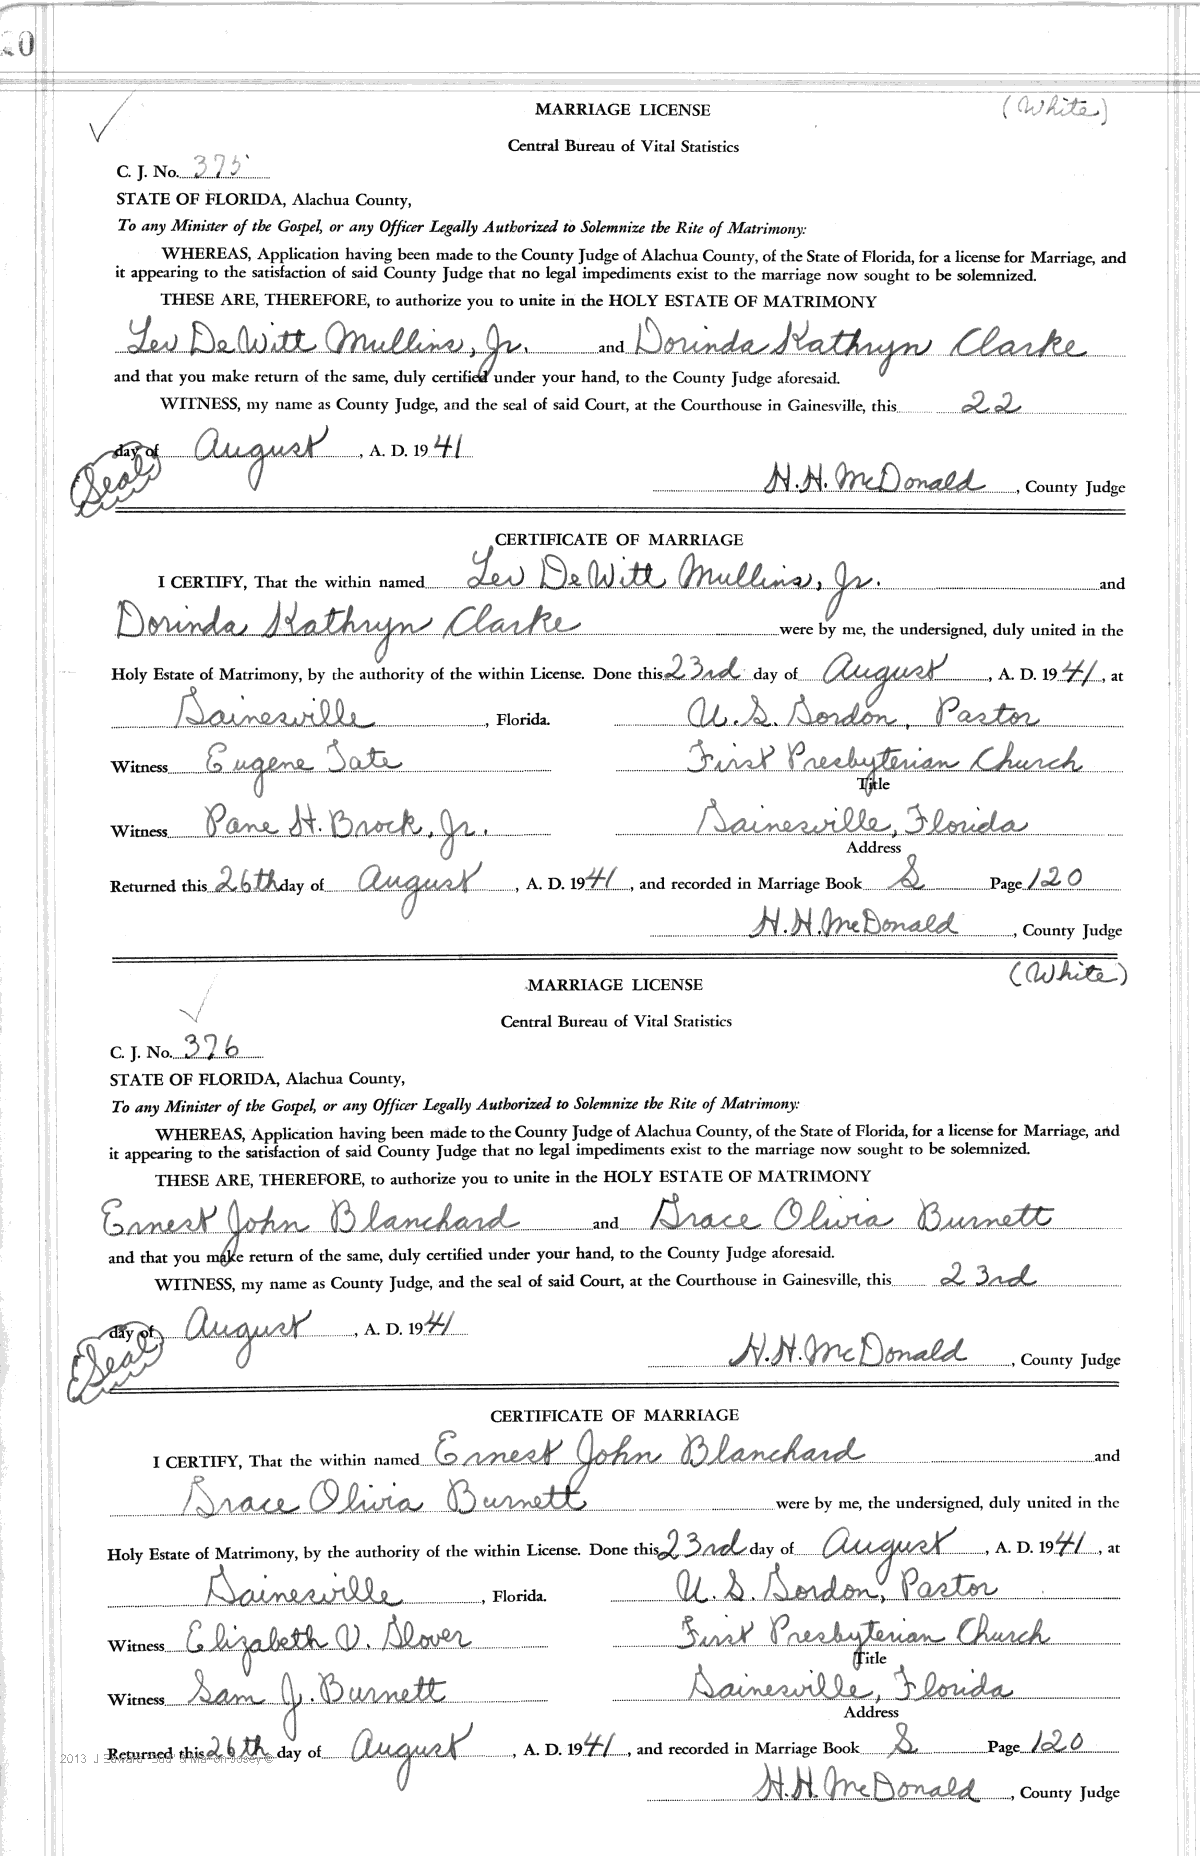 20
MARRIAGE LICENSE (White)
Central Bureau of Vital Statistics
C. J. No. 375
STATE OF FLORIDA, Alachua County,
To any Minister of the Gospel, or any Officer Legally Authorized to Solemnize the Rite of Matrimony:
WHEREAS, Application having been made to the County Judge of Alachua County, of the State of Florida, for a license for Marriage, and
it appearing to the satisfaction of said County Judge that no legal impediments exist to the marriage now sought to be solemnized.
THESE ARE, THEREFORE, to authorize you to unite in the HOLY ESTATE OF MATRIMONY
Lev DeWitt Mullins, Jr. and Dorinda Kathryn Clarke
and that you make return of the same, duly certified under your hand, to the County Judge aforesaid.
WITNESS, my name as County Judge, and the seal of said Court, at the Courthouse in Gainesville, this 22
day of August, A. D. 1941
(Seal) H. H. McDonald, County Judge
CERTIFICATE OF MARRIAGE
I CERTIFY, That the within named Lev DeWitt Mullins, Jr. and
Dorinda Kathryn Clarke were by me, the undersigned, duly united in the
Holy Estate of Matrimony, by the authority of the within License. Done this 23rd day of August, A. D. 1941, at
Gainesville, Florida. U. S. Gordon, Pastor
Witness Eugene Tate First Presbyterian Church
Title
Witness Pane H. Brock, Jr. Gainesville, Florida
Address
Returned this 26th day of August, A. D. 1941, and recorded in Marriage Book S Page 120
H. H. McDonald, County Judge
MARRIAGE LICENSE (White)
Central Bureau of Vital Statistics
C. J. No. 376
STATE OF FLORIDA, Alachua County,
To any Minister of the Gospel, or any Officer Legally Authorized to Solemnize the Rite of Matrimony:
WHEREAS, Application having been made to the County Judge of Alachua County, of the State of Florida, for a license for Marriage, and
it appearing to the satisfaction of said County Judge that no legal impediments exist to the marriage now sought to be solemnized.
THESE ARE, THEREFORE, to authorize you to unite in the HOLY ESTATE OF MATRIMONY
Ernest John Blanchard and Grace Olivia Burnett
and that you make return of the same, duly certified under your hand, to the County Judge aforesaid.
WITNESS, my name as County Judge, and the seal of said Court, at the Courthouse in Gainesville, this 23rd
day of August, A. D. 1941
(Seal) H. H. McDonald, County Judge
CERTIFICATE OF MARRIAGE
I CERTIFY, That the within named Ernest John Blanchard and
Grace Olivia Burnett were by me, the undersigned, duly united in the
Holy Estate of Matrimony, by the authority of the within License. Done this 23rd day of August, A. D. 1941, at
Gainesville, Florida. U. S. Gordon, Pastor
Witness Elizabeth V. Glover First Presbyterian Church
Title
Witness Sam J. Burnett Gainesville, Florida
Address
Returned this 26th day of August, A. D. 1941, and recorded in Marriage Book S Page 120
2013 J Edward
H. H. McDonald, County Judge